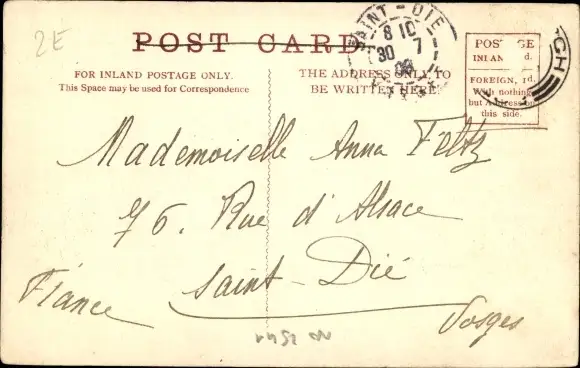 2E
POST CARD
SAINT-DIE
8 10
30 7
FOR INLAND POSTAGE ONLY.
This Space may be used for Correspondence
THE ADDRESS ONLY TO
BE WRITTEN HERE.
POSTAGE
INLAND d.
FOREIGN, 1d.
With nothing
but Address on
this side.
GH
Mademoiselle Anna Feltz
76. Rue d'Alsace
Saint-Dié
France
Vosges